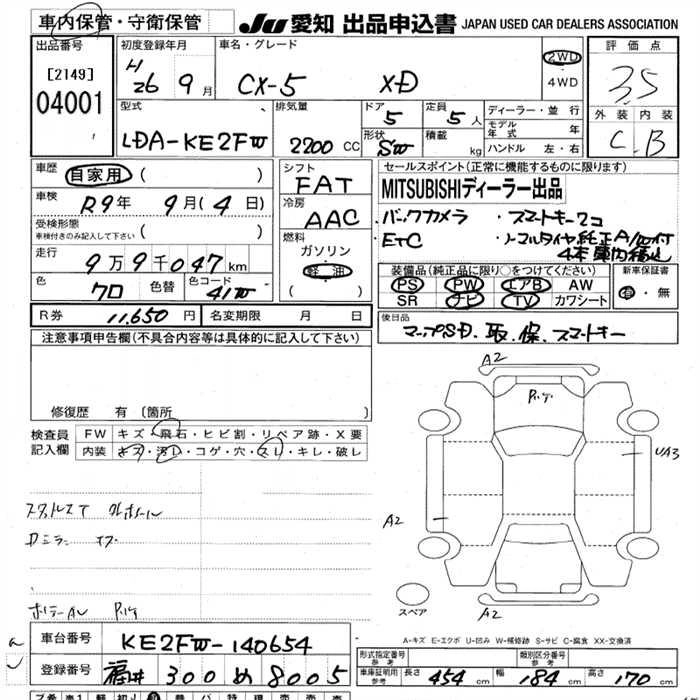 車内保管・守衛保管
JU 愛知 出品申込書 JAPAN USED CAR DEALERS ASSOCIATION
出品番号
[2149]
04001
初度登録年月
H26 9月
車名・グレード
CX-5 XD
2WD
4WD
評価点
3.5
外装 内装
C B
型式
LDA-KE2FW
排気量
2200 CC
ドア
5
定員
5人
形状
SW
積載
kg
ディーラー・並行
モデル年式 年
ハンドル 左・右
車歴
自家用 ( )
車検
R9年 9月(4日)
受検形態
車検付きのみ記入して下さい ( )
走行
9万9千047km
色
クロ
色替
色コード
41W
シフト
FAT
冷房
AAC
燃料
ガソリン
軽油
( )
セールスポイント(正常に機能するものに限ります)
MITSUBISHIディーラー出品
・バックカメラ ・スマートキー2コ
・ETC ・ノーマルタイヤ純正A/Wイナ
4本車内積込
装備品(純正品に限り○をつけてください)
PS PW エアB AW
SR ナビ TV カワシート
新車保証書
有・無
R券 11,650円
名変期限 月 日
後日品
マップSD、取、保、スマートキー
注意事項申告欄(不具合内容等は具体的に記入して下さい)
修復歴 有 [箇所 ]
検査員記入欄
FW キズ・飛石・ヒビ割・リペア跡・X要
内装 キズ・汚レ・コゲ・穴・スレ・キレ・破レ
A2
UA3
A2
A2
スペア
A-キズ E-エクボ U-凹み W-補修跡 S-サビ C-腐食 XX-交換済
車台番号
KE2FW-140654
登録番号
福井 300 め 8005
形式指定番号
参考
類別区分番号
参考
車庫証明用
参考
長さ 454 幅 184 高さ 170